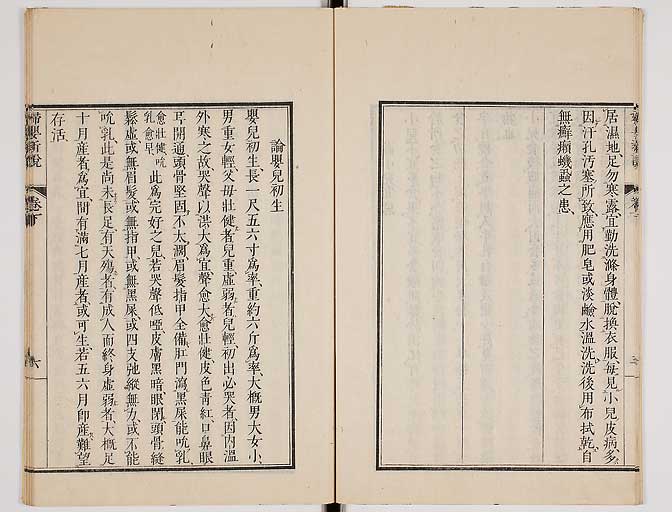 居濕地、足勿寒露、宜勤洗滌身體、脫換衣服、每見小兒皮病、多
因汗孔汚塞所致、應用肥皂或淡鹼水溫洗、洗後用布拭乾、自
無癬癩蟣蝨之患、
論嬰兒初生
嬰兒初生、長一尺五六寸爲率、重約六斤爲率、大概男大女小、
男重女輕、父母壯健者兒重、虛弱者兒輕、初出必哭者、因內溫
外寒之故、哭聲以洪大爲宜、聲愈大、愈壯健、皮色靑紅、口鼻眼
耳開通、頭骨堅固、不太濶、眉髮指甲全備、肛門瀉黑屎、能吮乳、
愈壯健、吮乳愈早、此爲完好之兒、若哭聲低啞、皮膚黑暗、眼閉、頭骨縫
鬆虛、或無眉髮、或無指甲、或無黑屎、或四支弛縱無力、或不能
吮乳、此是尚未長足、有天殤者、有成人而終身虛弱者、大概足
十月產者爲宜、間有滿七月產者、或可生、若五六月卽產、難望
存活、
婦嬰新說
卷下
六